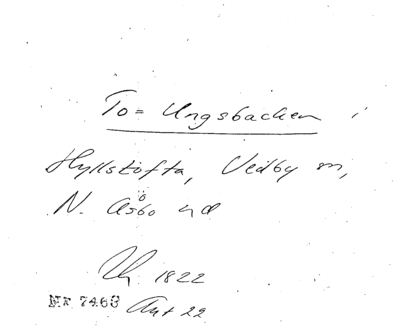 To= Ungsbacken i
Hyllstofta, Vedby sn,
N. Åsbo hd
1822
Nr 7463 Aut 22